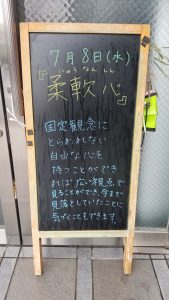 7月8日(水)
じゅうなんしん
『柔軟心』
固定観念に
とらわれない
自由な心を
持つことができ
れば広い視点で
見ることができ、今まで
見落としていたことに
気づくこともできます。